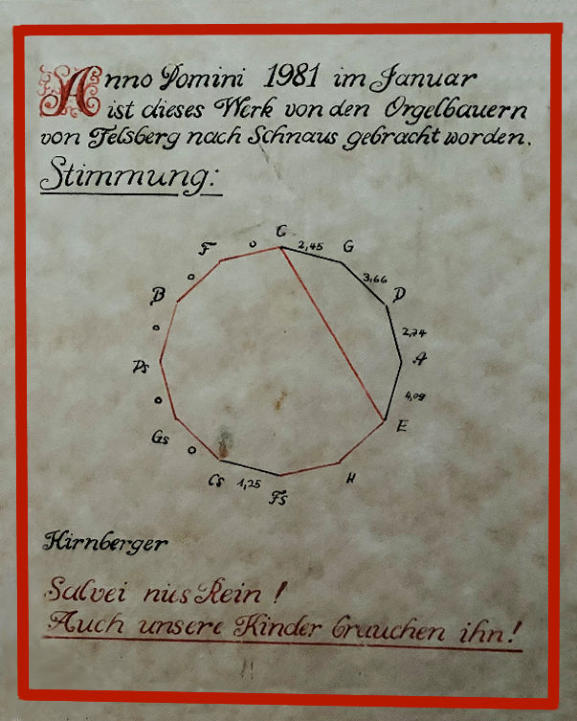 Anno Domini 1981 im Januar
ist dieses Werk von den Orgelbauern
von Felsberg nach Schnaus gebracht worden.
Stimmung:
C
F o 2,45 G
o 3,66
B D
o 2,74
Ds A
o 4,09
Gs E
o
Cs 1,25 Fs H
Kirnberger
Salvei nus Rein!
Auch unsere Kinder brauchen ihn!